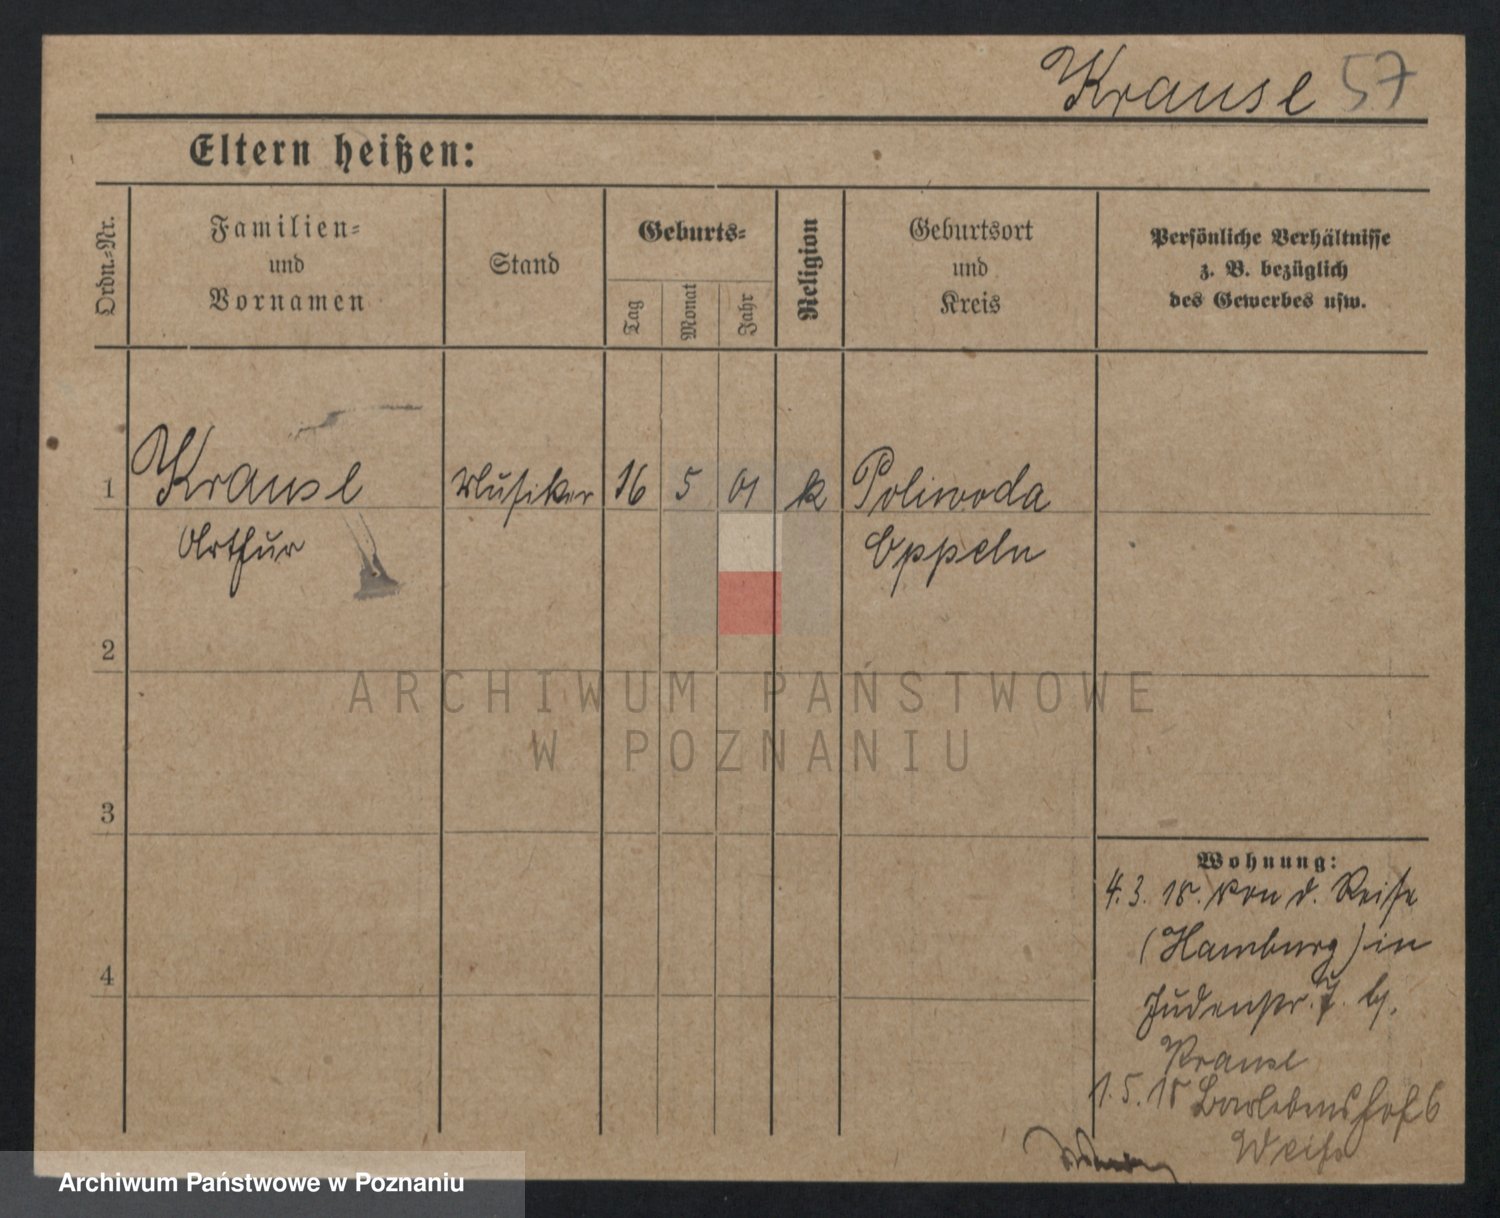 Krause 57
Eltern heißen:
Ordn.-Nr.
Familien-
und
Vornamen
Stand
Geburts-
Tag
Monat
Jahr
Religion
Geburtsort
und
Kreis
Persönliche Verhältnisse
z. B. bezüglich
des Gewerbes usw.
1 Krause Musiker 16 5 01 k Poliwoda
Arthur Oppeln
2
3
4
Wohnung:
4. 3. 18. von d. Reise
(Hamburg) in
Judenstr. 7. b.
Krause
1. 5. 18 Barlebenshof 6
Weiss
ARCHIWUM PAŃSTWOWE
W POZNANIU
Archiwum Państwowe w Poznaniu